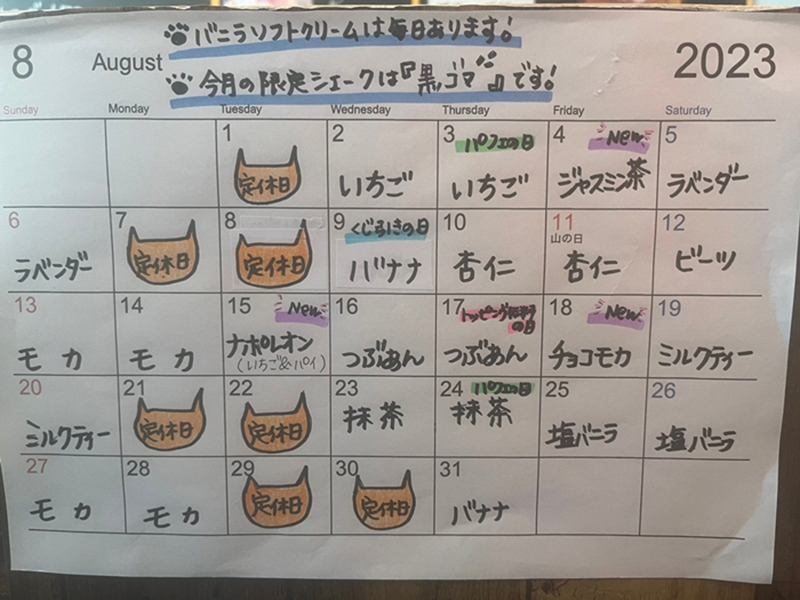 バニラソフトクリームは毎日あります!
8 August 2023
今月の限定シェークは『黒ゴマ』です!
Sunday Monday Tuesday Wednesday Thursday Friday Saturday
1 2 3 パフェの日 4 New 5
定休日 いちご いちご ジャスミン茶 ラベンダー
6 7 8 9 くじらきの日 10 11 12
山の日
ラベンダー 定休日 定休日 バナナ 杏仁 杏仁 ビーツ
13 14 15 New 16 17 トッピング
の日 18 New 19
モカ モカ ナポレオン つぶあん つぶあん チョコモカ ミルクティー
(いちご&パイ)
20 21 22 23 24 パフェの日 25 26
ミルクティー 定休日 定休日 抹茶 抹茶 塩バニラ 塩バニラ
27 28 29 30 31
モカ モカ 定休日 定休日 バナナ